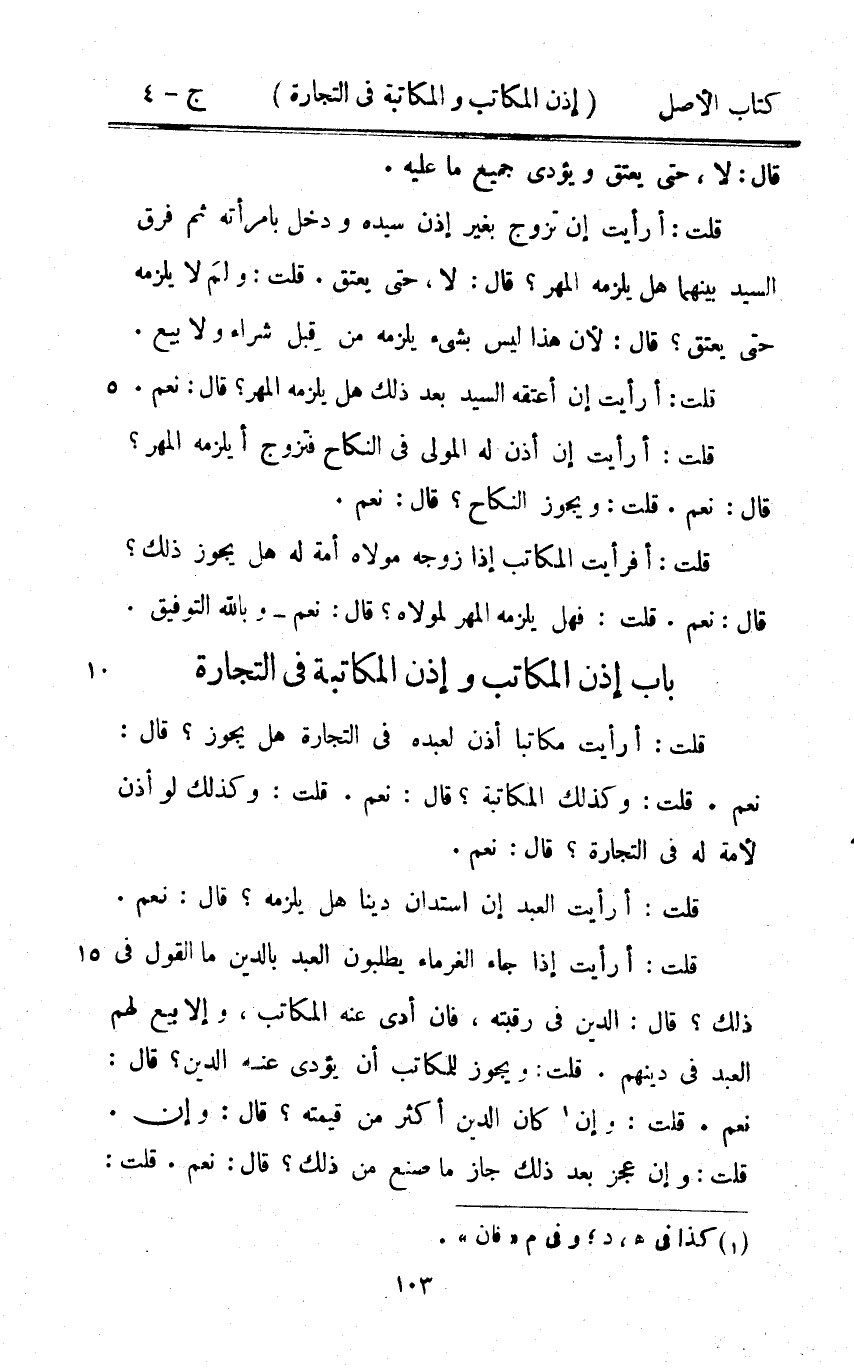 كتاب الأصل ( إذن المكاتب و المكاتبة فى التجارة ) ج - ٤
قال : لا ، حتى يعتق و يؤدى جميع ما عليه .
قلت : أ رأيت إن تزوج بغير إذن سيده و دخل بامرأته ثم فرق
السيد بينهما هل يلزمه المهر ؟ قال : لا ، حتى يعتق . قلت : و لمَ لا يلزمه
حتى يعتق ؟ قال : لأن هذا ليس بشىء يلزمه من قِبل شراء و لا بيع .
قلت : أ رأيت إن أعتقه السيد بعد ذلك هل يلزمه المهر ؟ قال : نعم . ٥
قلت : أ رأيت إن أذن له المولى فى النكاح فتزوج أ يلزمه المهر ؟
قال : نعم . قلت : و يجوز النكاح ؟ قال : نعم .
قلت : أ فرأيت المكاتب إذا زوجه مولاه أمة له هل يجوز ذلك ؟
قال : نعم . قلت : فهل يلزمه المهر لمولاه ؟ قال : نعم ـ و بالله التوفيق .
باب إذن المكاتب و إذن المكاتبة فى التجارة ١٠
قلت : أ رأيت مكاتبا أذن لعبده فى التجارة هل يجوز ؟ قال :
نعم . قلت : و كذلك المكاتبة ؟ قال : نعم . قلت : و كذلك لو أذن
لأمة له فى التجارة ؟ قال : نعم .
قلت : أ رأيت العبد إن استدان دينا هل يلزمه ؟ قال : نعم .
قلت : أ رأيت إذا جاء الغرماء يطلبون العبد بالدين ما القول فى ١٥
ذلك ؟ قال : الدين فى رقبته ، فان أدى عنه المكاتب ، و إلا بيع لهم
العبد فى دينهم . قلت : و يجوز للمكاتب أن يؤدى عنه الدين ؟ قال :
نعم . قلت : و إن ١ كان الدين أكثر من قيمته ؟ قال : و إن .
قلت : و إن عجز بعد ذلك جاز ما صنع من ذلك ؟ قال : نعم . قلت :
(١) كذا فى ه ، د ؛ و فى م « فان » .
١٠٣